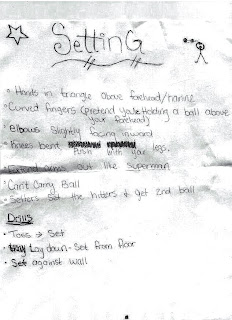 Setting
• Hands in triangle above forehead/hairline
• Curved fingers (pretend you're holding a ball above
your forehead)
• elbows slightly facing inward
• Knees bent Push with your legs.
• Extend arms out like superman
• Can't Carry Ball
• Setters Set the hitters & get 2nd ball
Drills
• Toss → Set
• Lay down - Set from floor
• Set against wall